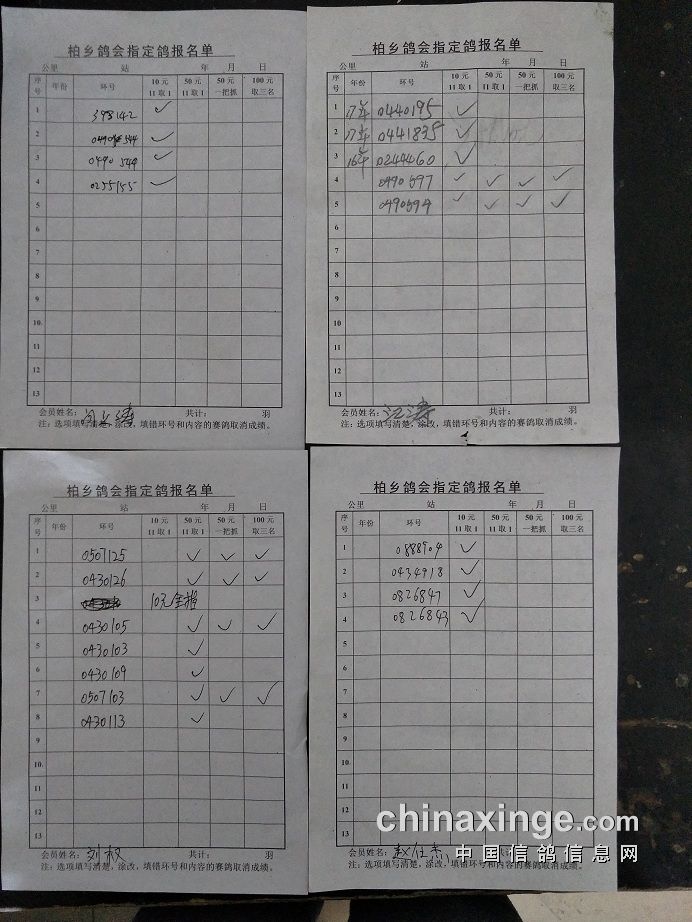 柏乡鸽会指定鸽报名单
公里 站 年 月 日
序号 年份 环号 10元 11取1 50元 11取1 50元 一把抓 100元 取三名
1 398142 ✓
2 ✓
3 0490544 ✓
4 0255155 ✓
5
6
7
8
9
10
11
12
13
会员姓名： 共计： 羽
注：选项填写清楚，涂改，填错环号和内容的赛鸽取消成绩。
柏乡鸽会指定鸽报名单
公里 站 年 月 日
序号 年份 环号 10元 11取1 50元 11取1 50元 一把抓 100元 取三名
1 17年 0440195 ✓
2 17年 0441835 ✓
3 16年 0244460 ✓
4 0490597 ✓ ✓ ✓ ✓
5 0490594 ✓ ✓ ✓ ✓
6
7
8
9
10
11
12
13
会员姓名： 共计： 羽
注：选项填写清楚，涂改，填错环号和内容的赛鸽取消成绩。
柏乡鸽会指定鸽报名单
公里 站 年 月 日
序号 年份 环号 10元 11取1 50元 11取1 50元 一把抓 100元 取三名
1 0507125 ✓ ✓ ✓
2 0430126 ✓ ✓ ✓
3 10元全指
4 0430105 ✓ ✓ ✓
5 0430103 ✓
6 0430109 ✓
7 0507103 ✓ ✓ ✓
8 0430113 ✓
9
10
11
12
13
会员姓名：刘权 共计： 羽
注：选项填写清楚，涂改，填错环号和内容的赛鸽取消成绩。
柏乡鸽会指定鸽报名单
公里 站 年 月 日
序号 年份 环号 10元 11取1 50元 11取1 50元 一把抓 100元 取三名
1 0888904 ✓
2 0434918 ✓
3 0826847 ✓
4 0826843 ✓
5
6
7
8
9
10
11
12
13
会员姓名：赵仕杰
注：选项填写清楚，涂改，填错环号和内容的赛鸽取消成绩。
chinaxinge.com
中国信鸽信息网